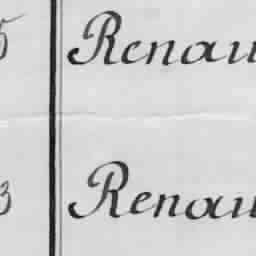 5 Renau
3 Renau